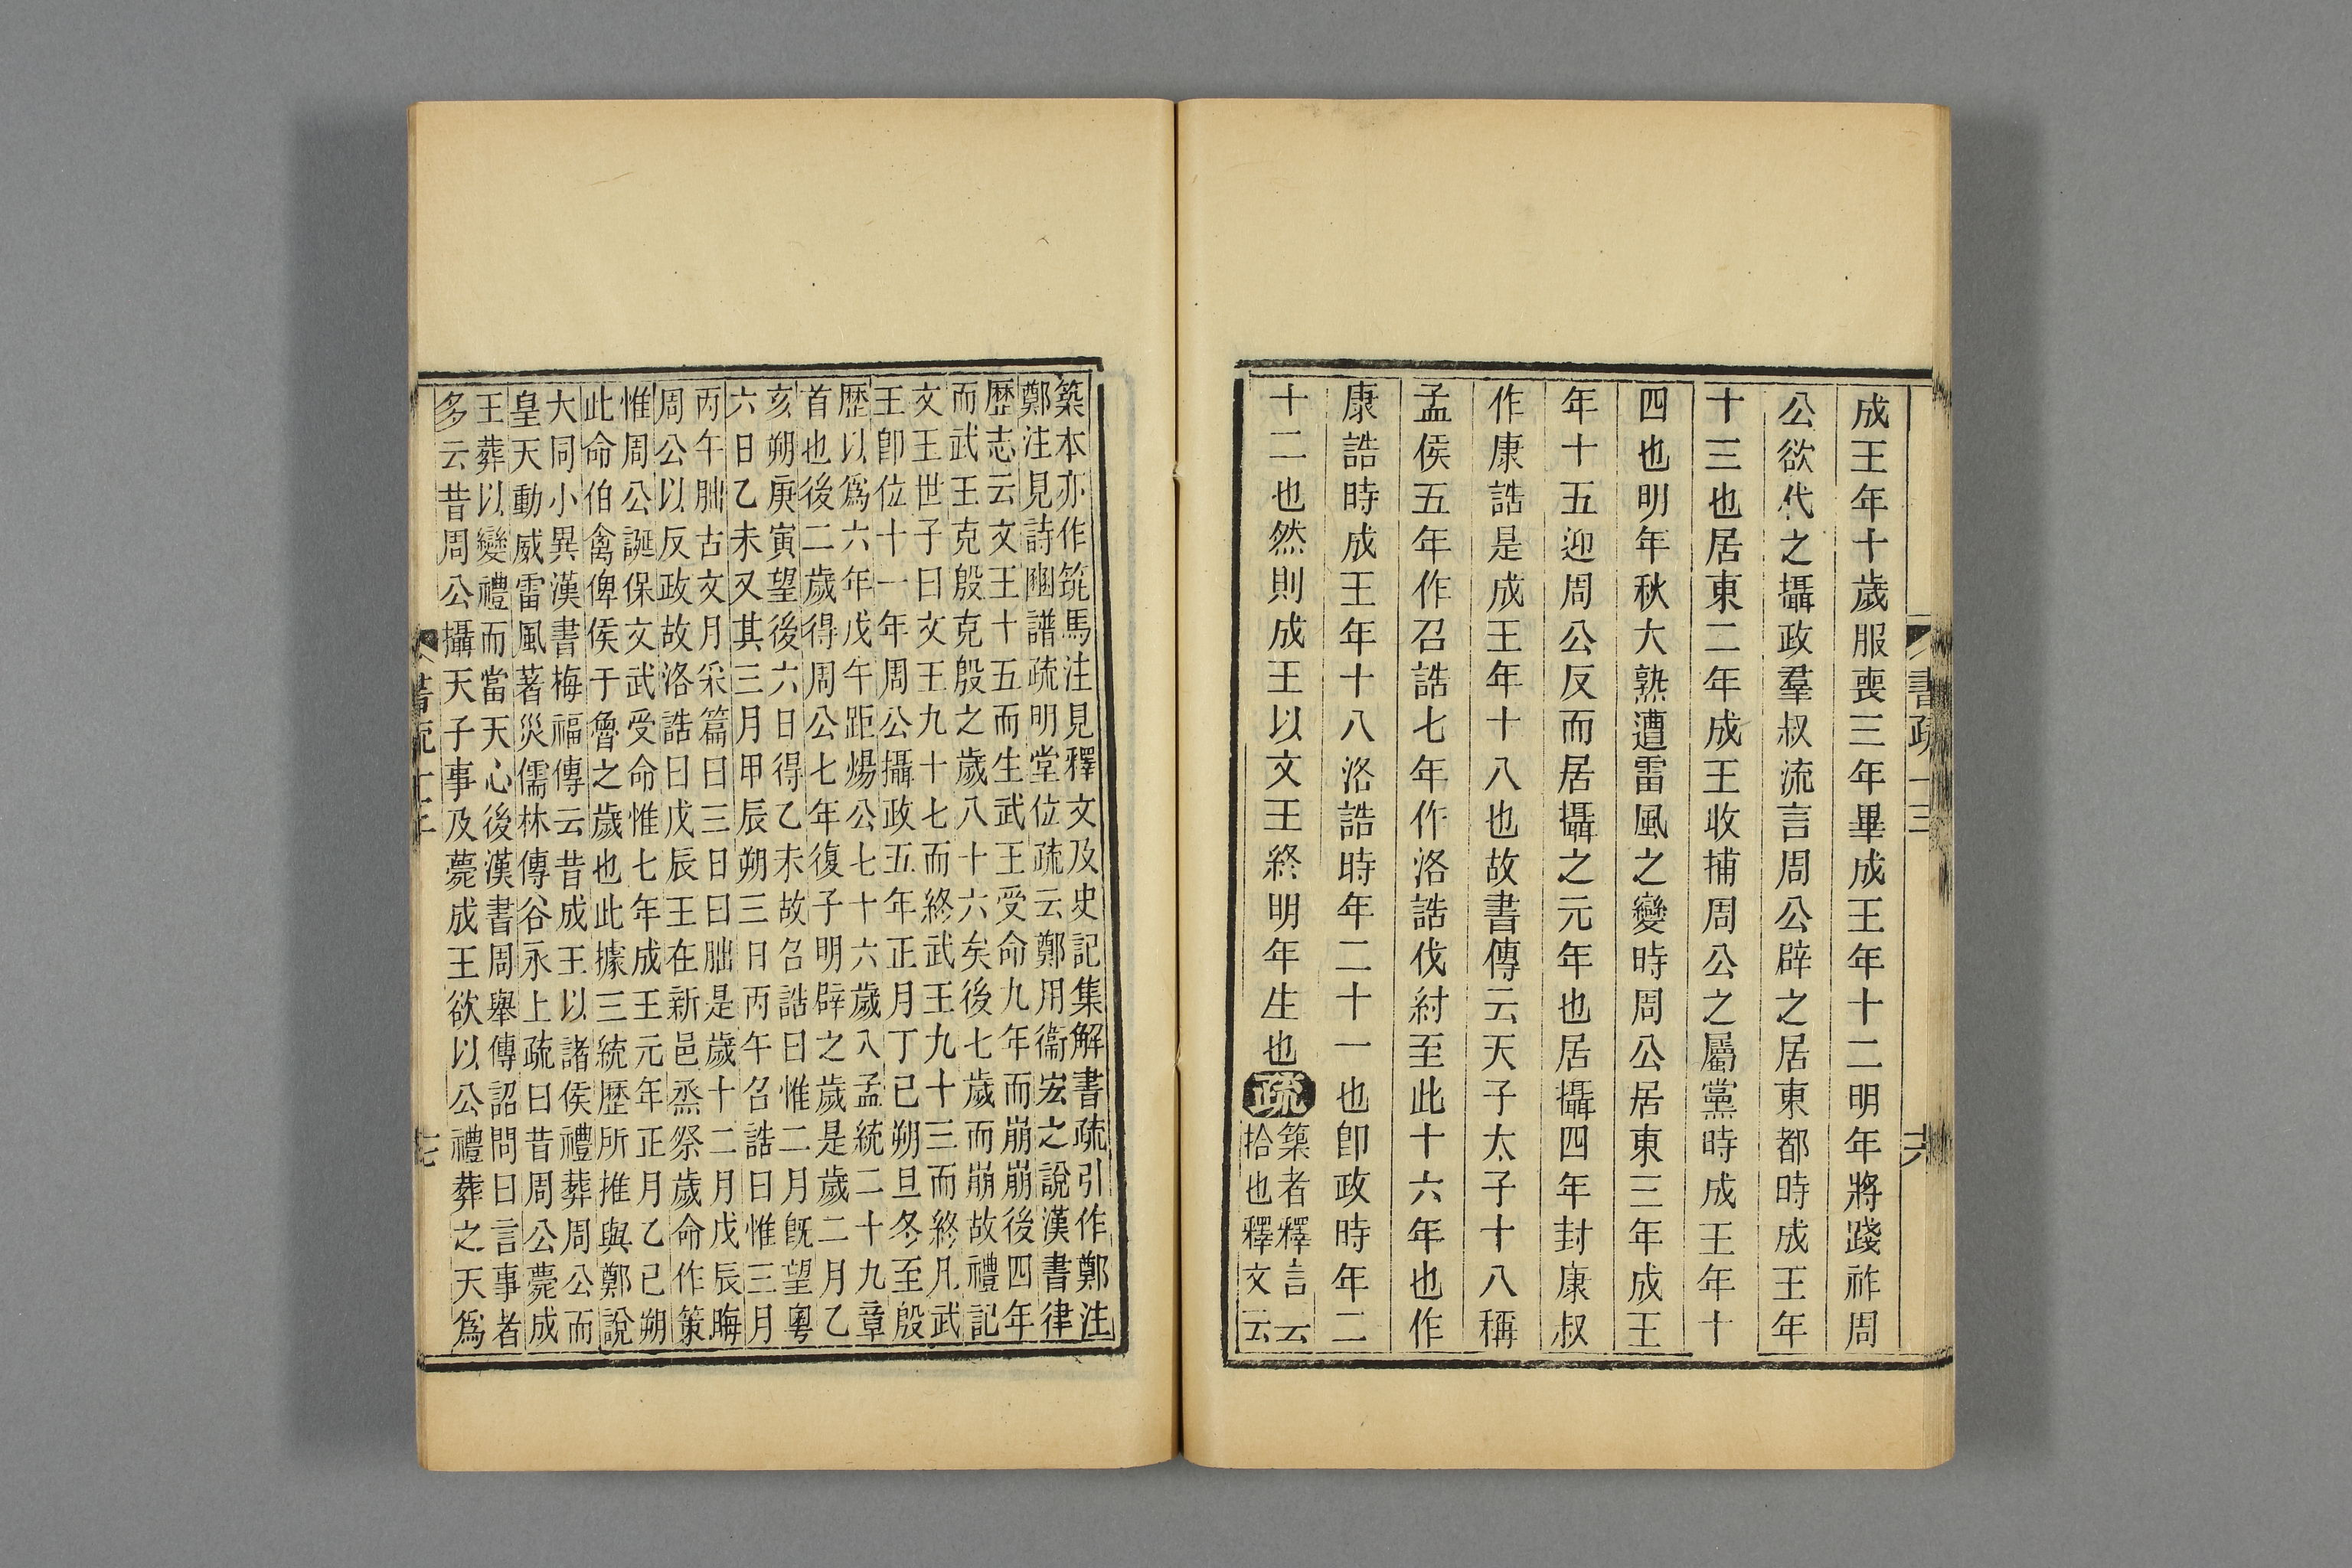 書疏十三
六
成王年十歲服喪三年畢成王年十二明年將踐祚周
公欲代之攝政羣叔流言周公辟之居東都時成王年
十三也居東二年成王收捕周公之屬黨時成王年十
四也明年秋大熟遭雷風之變時周公居東三年成王
年十五迎周公反而居攝之元年也居攝四年封康叔
作康誥是成王年十八也故書傳云天子太子十八稱
孟侯五年作召誥七年作洛誥伐紂至此十六年也作
康誥時成王年十八洛誥時年二十一也卽政時年二
十二也然則成王以文王終明年生也疏
築者釋言云
拾也釋文云
築本亦作筑馬注見釋文及史記集解書疏引作鄭注
鄭注見詩豳譜疏明堂位疏云鄭用衞宏之說漢書律
歷志云文王十五而生武王受命九年而崩崩後四年
而武王克殷克殷之歲八十六矣後七歲而崩故禮記
文王世子曰文王九十七而終武王九十三而終凡武
王卽位十一年周公攝政五年正月丁巳朔旦冬至殷
歷以爲六年戊午距煬公七十六歲入孟統二十九章
首也後二歲得周公七年復子明辟之歲是歲二月乙
亥朔庚寅望後六日得乙未故召誥曰惟二月旣望粵
六日乙未又其三月甲辰朔三日丙午召誥曰惟三月
丙午朏古文月采篇曰三日曰朏是歲十二月戊辰晦
周公以反政故洛誥曰戊辰王在新邑烝祭歲命作策
惟周公誕保文武受命惟七年成王元年正月乙巳朔
此命伯禽俾侯于魯之歲也此據三統歷所推與鄭說
大同小異漢書梅福傳云昔成王以諸侯禮葬周公而
皇天動威雷風著災儒林傳谷永上疏曰昔周公薨成
王葬以變禮而當天心後漢書周舉傳詔問曰言事者
多云昔周公攝天子事及薨成王欲以公禮葬之天爲